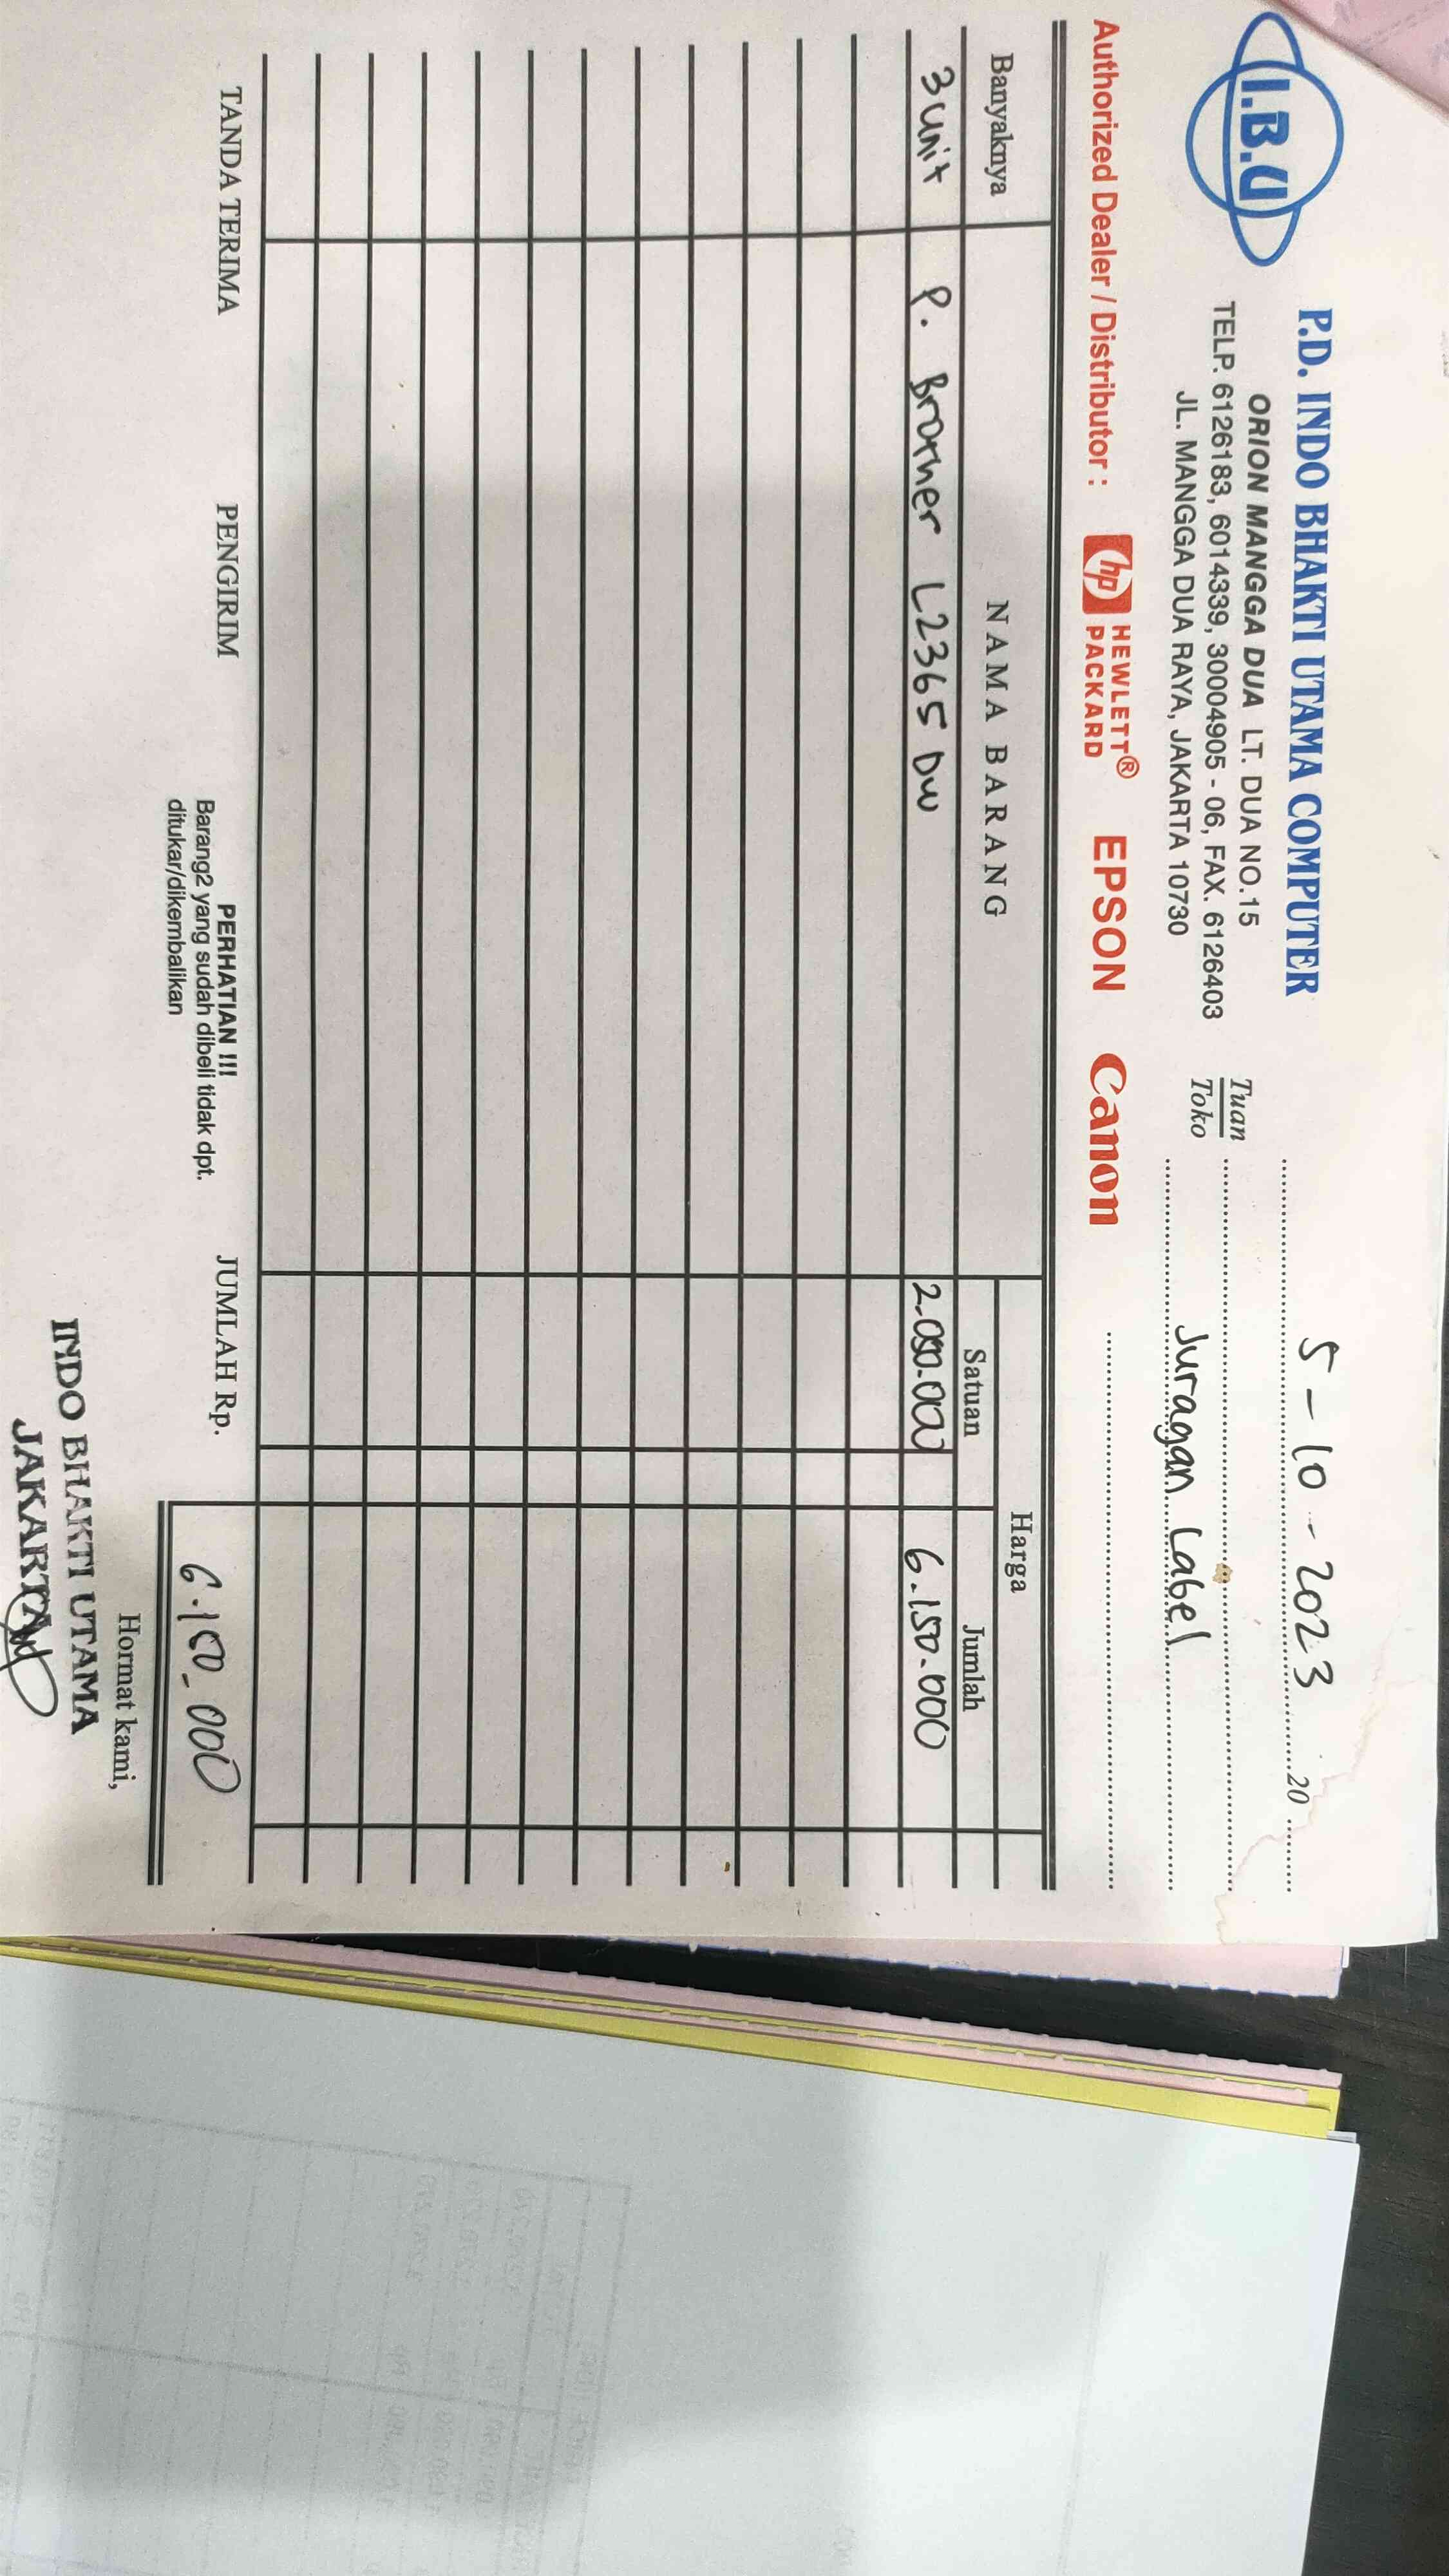 I.B.U
P.D. INDO BHAKTI UTAMA COMPUTER
ORION MANGGA DUA LT. DUA NO.15
TELP. 6126183, 6014339, 30004905 - 06, FAX. 6126403
JL. MANGGA DUA RAYA, JAKARTA 10730
5 - 10 - 2023 20
Tuan
Toko
Juragan Label
Authorized Dealer / Distributor : hp HEWLETT® PACKARD EPSON Canon
Banyaknya NAMA BARANG Harga
Satuan Jumlah
3 unit P. Brother L2365 DW 2.050.000 6.150.000
TANDA TERIMA PENGIRIM PERHATIAN !!! JUMLAH Rp. 6.150.000
Barang2 yang sudah dibeli tidak dpt.
ditukar/dikembalikan
Hormat kami,
INDO BHAKTI UTAMA
JAKARTA